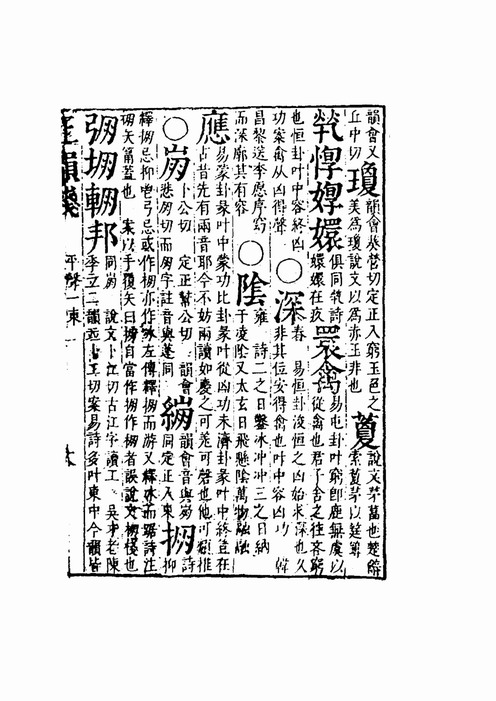 韻會又丘中切 瓊 韻會葵營切定正入窮玉色之美爲瓊說文以爲赤玉非也 藑 說文茅葍也楚辭索藑茅以筳篿
煢惸嬛嬛 俱同煢詩嬛嬛在疚 睘禽 易屯卦叶窮卽鹿無虞以從禽也君子舍之往吝窮
也恒卦叶中容終凶功案禽从凶得聲 ○深 春 易恒卦浚恒之凶始求深也久非其位安得禽也叶中容凶功 韓
昌黎送李愿序窈而深廓其有容 ○陰 雍 詩二之日鑿冰冲冲三之日納于凌陰又太玄日飛懸陰萬物融融
應 易蒙卦彖叶中蒙功比卦彖叶從凶功未濟卦叶中終豈在古昔先有兩音耶今不妨兩讀如慶之可羌可磬也他可類推
○崩 卜公切 定正幫公切 韻會悲朋切而朋字註音與蓬同 繃 韻會音與崩同定正入東 掤 詩抑
釋掤忌抑鬯弓忌或作捬亦作冰左傳釋掤而游又釋冰而踞詩注掤矢筩蓋也 案以手覆矢曰掤自當作掤作棚者誤說文棚棧也
弸堋輣邦 同崩 說文卜江切古江字讀工 吳才老陳季立二韻並卜工切案易詩多叶東中今韻皆
平聲一東